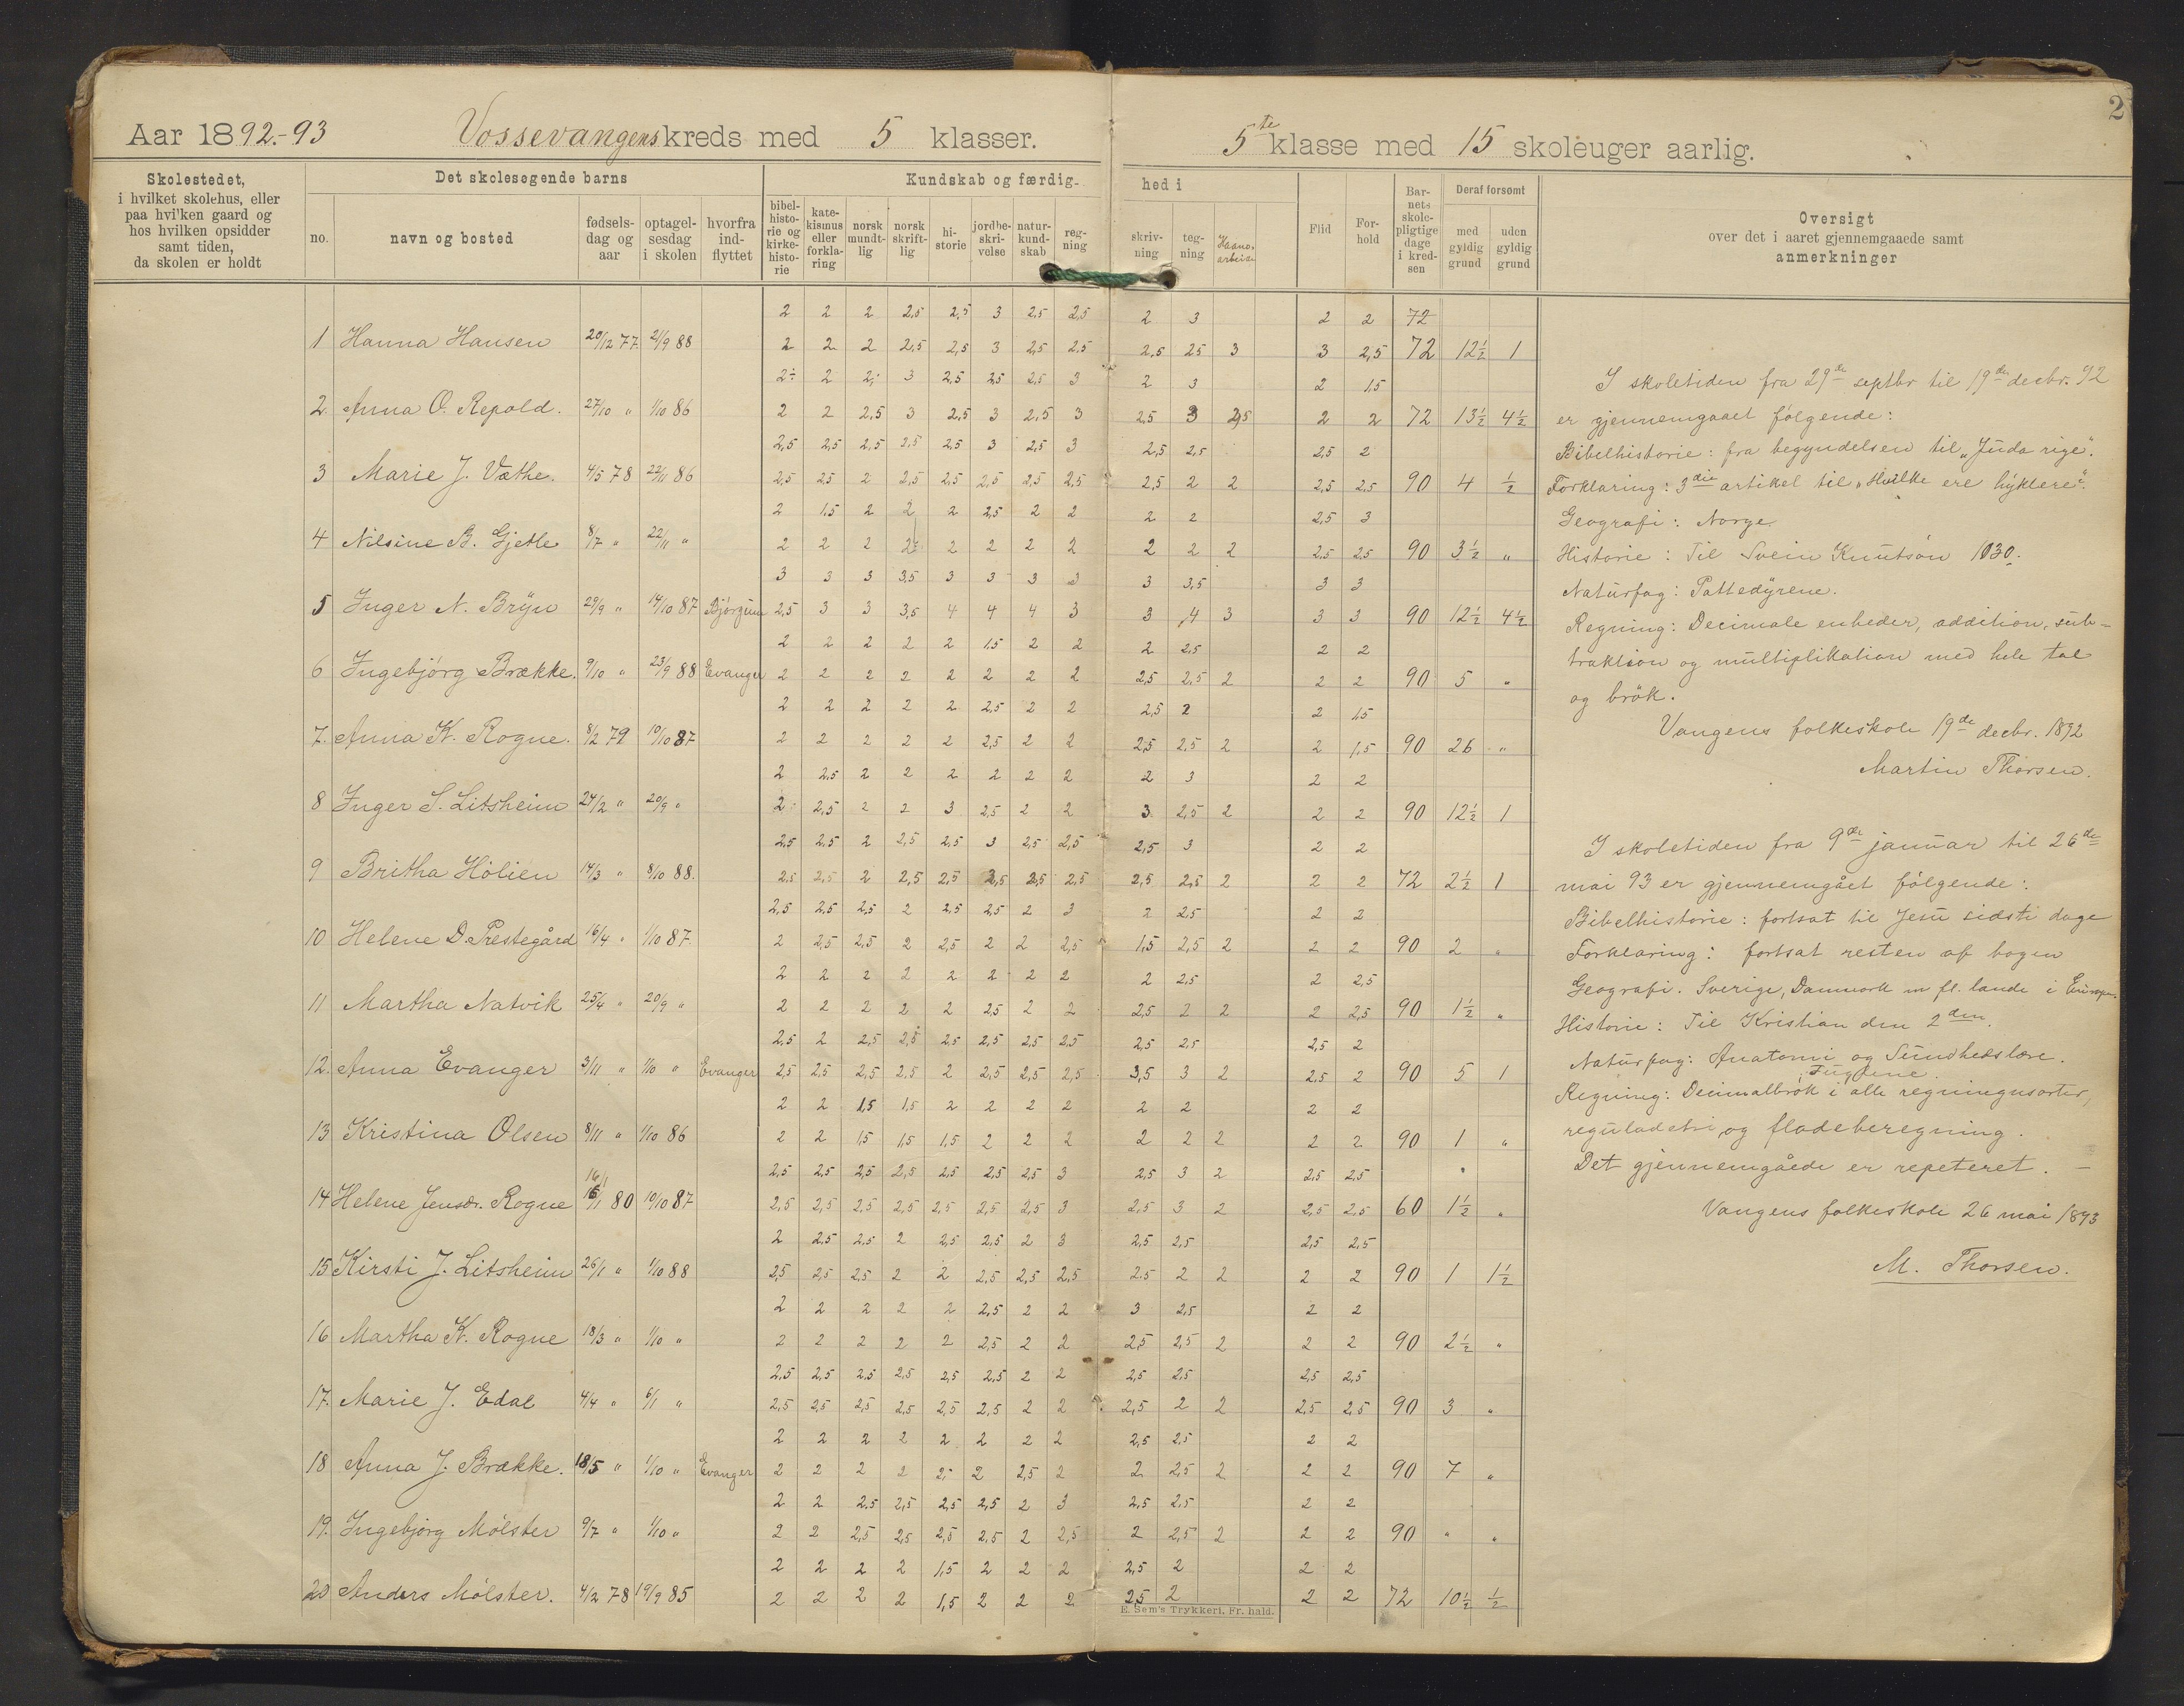 2
Aar 1892.-93 Vossevangens kreds med 5 klasser. 5te klasse med 15 skoleuger aarlig.
Skolestedet,
i hvilket skolehus, eller
paa hvilken gaard og
hos hvilken opsidder
samt tiden,
da skolen er holdt
Det skolesøgende barns
no.
navn og bosted
fødsels-
dag og
aar
optagel-
sesdag
i skolen
hvorfra
ind-
flyttet
Kundskab og færdig-
hed i
bibel-
histo-
rie og
kirke-
histo-
rie
kate-
kismus
eller
forkla-
ring
norsk
mundt-
lig
norsk
skrift-
lig
hi-
storie
jordbe-
skri-
velse
natur-
kund-
skab
reg-
ning
skriv-
ning
teg-
ning
Haand-
arbeide
Flid
For-
hold
Bar-
nets
skole-
pligtige
dage
i kred-
sen
Deraf forsømt
med
gyldig
grund
uden
gyldig
grund
Oversigt
over det i aaret gjennemgaaede samt
anmerkninger
2 2 2 2,5 2,5 3 2,5 2,5 2 3 2 2 72
1 Hanna Hansen 20/12 77 21/9 88 2 2 2 2,5 2,5 3 2,5 2,5 2,5 2,5 3 3 2,5 72 12½ 1
2 2 2 3 2,5 2,5 2,5 3 2 3 2 1,5
2. Anna O. Repold. 27/10 " 1/10 86 2 2 2,5 3 2,5 3 2,5 3 2,5 3 2,5 2 2 72 13½ 4½
2,5 2,5 2,5 2,5 2,5 3 2,5 3 2,5 2,5 2,5 2
3 Marie J. Væthe. 4/5 78 22/11 86 2,5 2,5 2 2,5 2,5 2,5 2,5 2,5 2,5 2 2 2,5 2,5 90 4 ½
2 1,5 2 2 2 2,5 2 2 2 2 2,5 3
4 Nilsine B. Gjetle 8/7 " 22/11 " 2 2 2 2 2 2 2 2 2 2 2 2,5 2,5 90 3½ "
3 3 3 3,5 3 3 3 3 3 3,5 3 3
5 Inger N. Bryn 29/9 " 14/10 87 Bjørgum 2,5 3 3 3,5 4 4 4 3 3 4 3 3 3 90 12½ 4½
2 2 2 2 2 1,5 2 2 2 2,5 2 2
6 Ingebjørg Brække. 9/10 " 23/9 88 Evanger 2 2 2 2 2 2 2 2 2,5 2,5 2 2 2 90 5 "
2 2 2 2 2 2,5 2 2 2,5 2 2 1,5
7. Anna K. Rogne. 8/2 79 10/10 87 2 2 2 2 2 2,5 2 2 2,5 2,5 2 2 1,5 90 26 "
2 2,5 2 2 2 2 2 2 2 3 2 2
8 Inger S. Litsheim 24/2 " 20/9 " 2 2,5 2 2 3 2,5 2 2 3 2,5 2 2 2 90 12½ 1
2,5 2,5 2 2,5 2,5 3 2,5 2,5 2,5 3 2 2
9 Britha Hølien 14/3 " 8/10 88. 2,5 2,5 2 2,5 2,5 2,5 2,5 2,5 2,5 2,5 2 2 2 72 2½ 1
2,5 2,5 2,5 2 2,5 2,5 2 3 2 2,5 2 2
10 Helene D. Prestegård 16/4 " 1/10 87 2 2,5 2,5 2 2,5 2 2 2,5 1,5 2,5 2 2 2 90 2 "
2 2 2 2 2 2 2 2 2 2,5 2 2,5
11 Martha Natvik 25/4 " 20/9 " 2 2 2 2 2 2,5 2 2 2,5 2 2 2 2,5 90 1½ "
2,5 2 2,5 2,5 2,5 2,5 2,5 2,5 2,5 2,5 2,5 2
12. Anna Evanger 3/11 " 1/10 " Evanger 2,5 2,5 2,5 2,5 2 2,5 2,5 2,5 3,5 3 2 2,5 2 90 5 1
2 2 1,5 1,5 2 2 2 2 2 2 2 2
13 Kristina Olsen 8/11 " 1/10 86 2 2 1,5 1,5 1,5 2 2 2 2 2 2 2 2 90 1 "
16/1 2,5 2,5 2,5 2,5 2,5 2,5 2,5 3 2,5 3 2 2,5 2,5 "
14 Helene Jensdr. Rogne 80 10/10 87 2,5 2,5 2,5 2,5 2,5 2,5 2,5 3 2,5 3 2 2,5 2,5 60 1½ "
2 2,5 2,5 2 2,5 2,5 2 3 2,5 2,5 2,5 2,5
15 Kirsti J. Litsheim 26/1 " 1/10 88 2,5 2,5 2,5 2 2 2,5 2,5 2,5 2,5 2 2 2 2 90 1 1½
2 2 2 2 2 2,5 2 2 3 2,5 2 2
16 Martha K. Rogne 18/3 " 1/10 " 2 2 2 2 2 2,5 2 2 2,5 2,5 2 2 2 90 2½ "
2,5 2,5 2,5 2,5 2,5 2,5 2 2 2,5 2,5 2,5 2,5
17. Marie J. Edal 4/4 " 6/1 " 2,5 2,5 2,5 2,5 2,5 2,5 2 2 2,5 2 2 2,5 2,5 90 3 "
2 2 2 2 2 2 2 2 2,5 2,5 2 2
18 Anna J. Brække. 18/5 " 1/10 " Evanger 2 2 2 2 2 2 2,5 2 2 2,5 2 2 2 90 7 "
2 2 2,5 2,5 2,5 2,5 2 3 2,5 2,5 2 2
19. Ingebjørg Mølster 9/7 " 1/10 " 2 2 2,5 2,5 2,5 2,5 2 2,5 2 2,5 2 2 2 90 " "
2 2 2 2 1,5 2 2 2 2,5 2 2 2
20 Anders Mølster. 4/12 78 19/9 85 2 2 2 2 1,5 2 2 2 2,5 2 2 2 72 10½ ½
E. Sem's Trykkeri, Fr. hald.
I skoletiden fra 29de septbr til 19de decbr. 92
er gjennemgaaet følgende:
Bibelhistorie: fra begyndelsen til „Juda rige".
Forklaring: 3die artikel til „Hvilke ere hyklere".
Geografi: Norge.
Historie: Til Svein Knutsøn 1030.
Naturfag: Pattedyrene.
Regning: Decimale enheder, addition, sub-
traktion og multiplikation med hele tal
og brøk.
Vangens folkeskole 19de decbr. 1892
Martin Thorsen.
I skoletiden fra 9de januar til 26de
mai 93 er gjennemgået følgende:
Bibelhistorie: fortsat til Jesu sidste dage
Forklaring: fortsat resten af bogen
Geografi. Sverige, Danmark m fl. lande i Europa.
Historie: Til Kristian den 2den.
Naturfag: Anatomi og Sundhedslære.
Fuglene.
Regning: Decimalbrøk i alle regningsarter,
reguladetri, og fladeberegning.
Det gjennemgåede er repeteret. –
Vangens folkeskole 26 mai 1893
M. Thorsen.